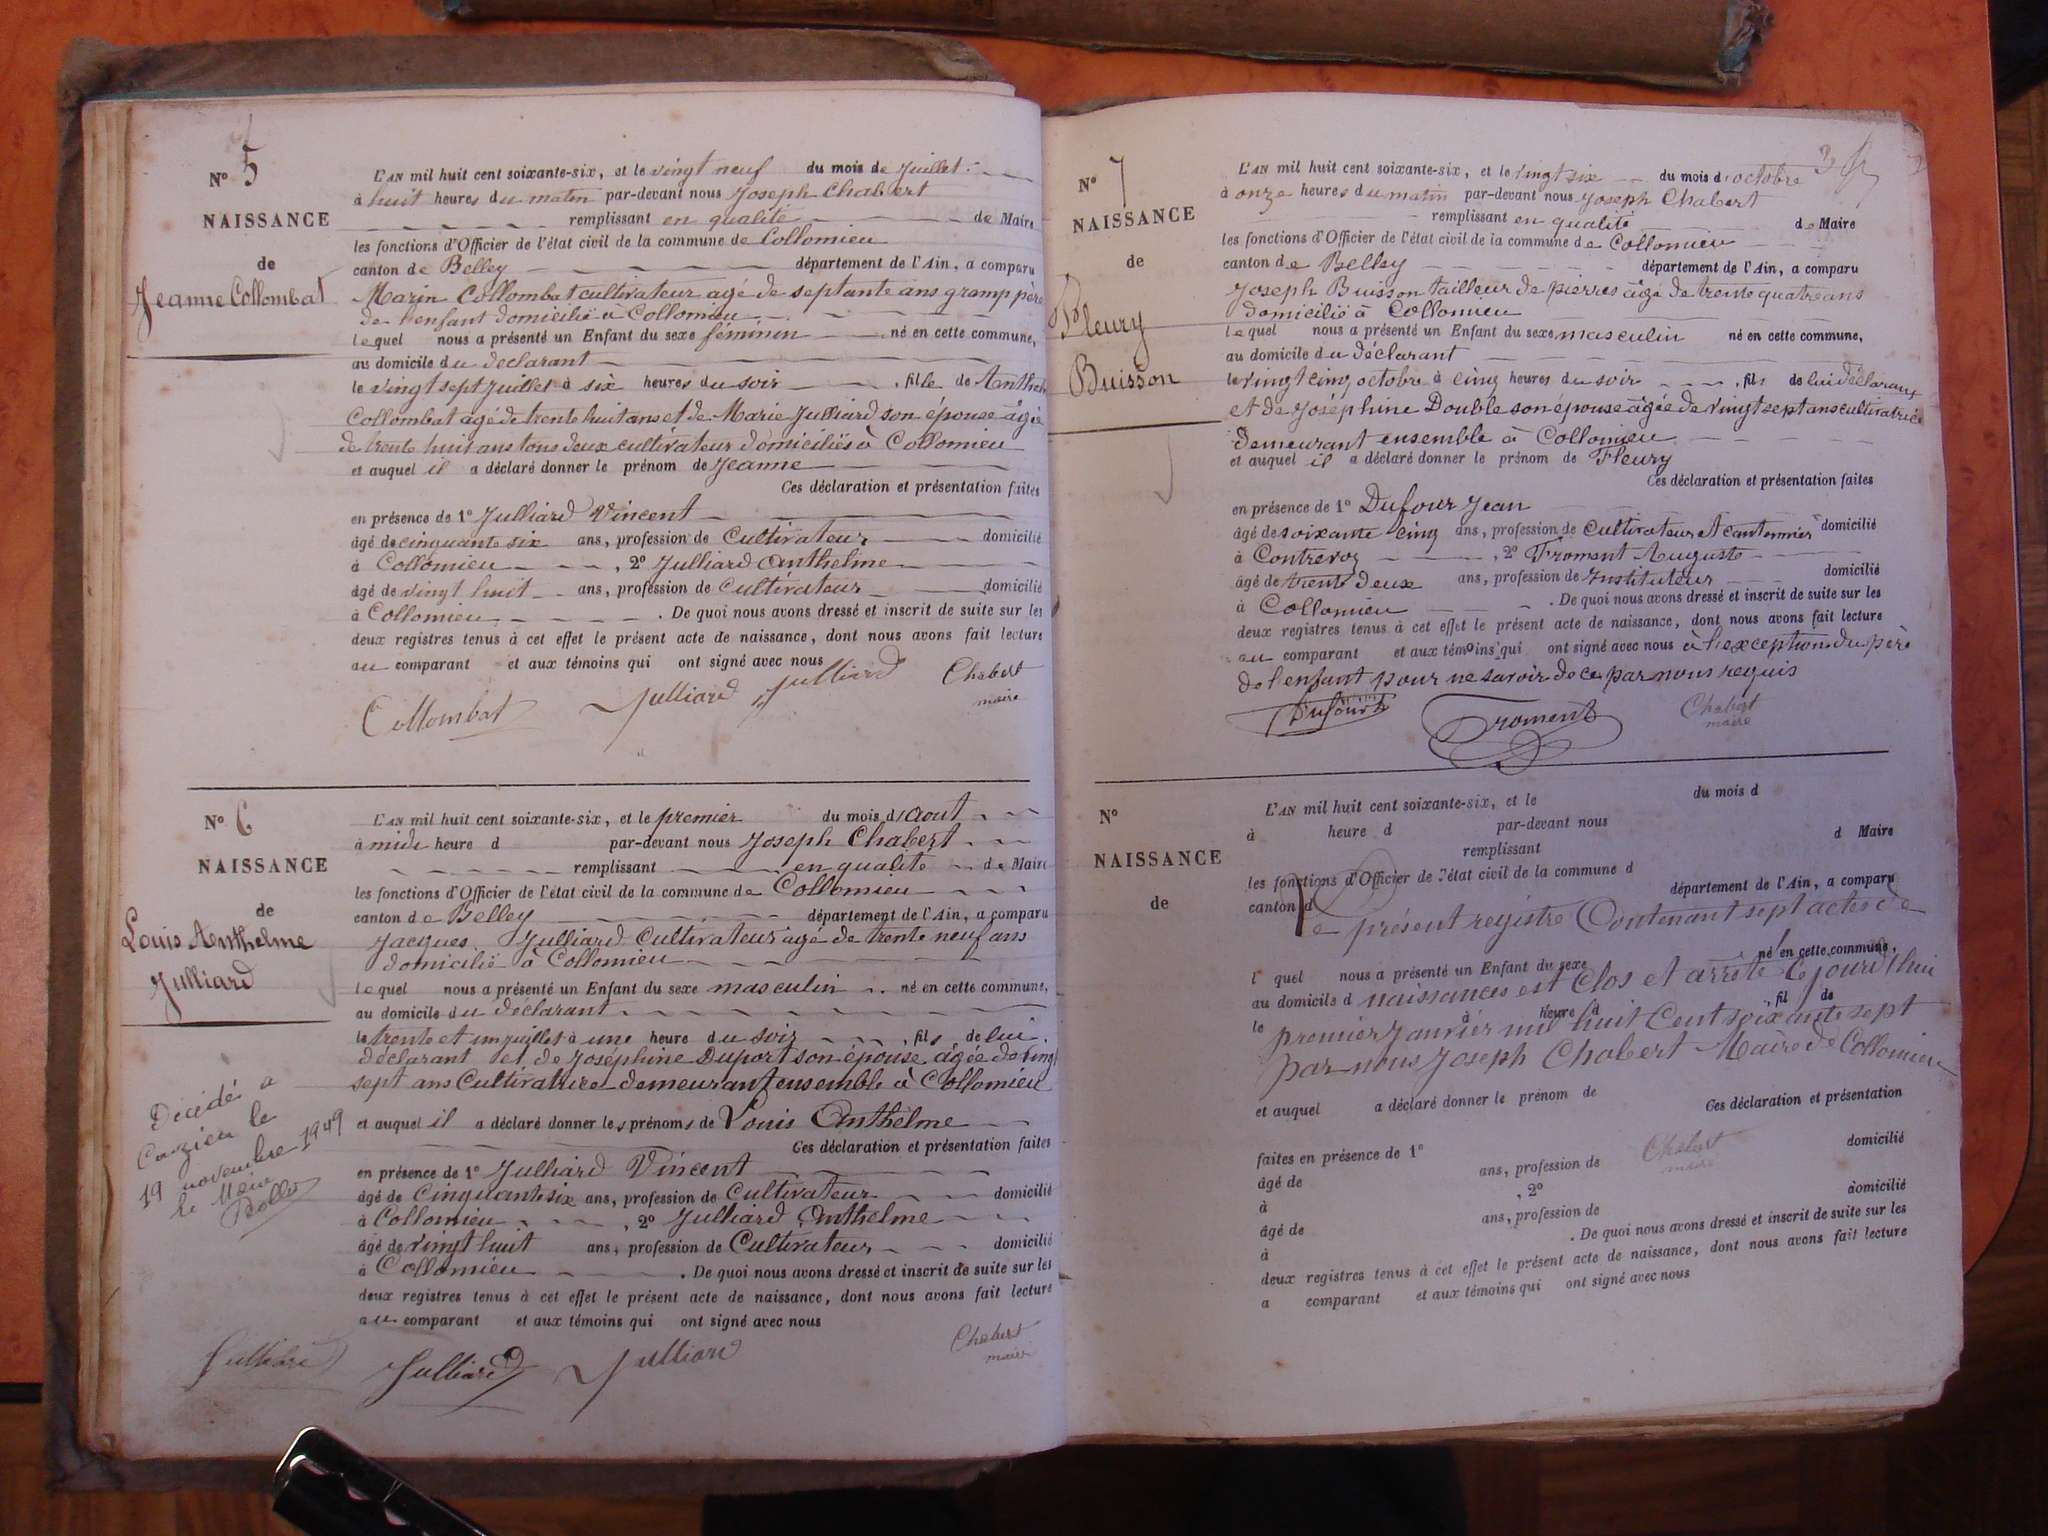 N° 5
NAISSANCE
de
Jeanne Collombat
L'AN mil huit cent soixante-six, et le vingt neuf du mois de Juillet
à huit heures du matin par-devant nous Joseph Chabert
remplissant en qualité de Maire
les fonctions d'Officier de l'état civil de la commune de Collomieu
canton de Belley département de l'Ain, a comparu
Marin Collombat cultivateur agé de septante ans gramp père
de l'enfant domicilié à Collomieu
lequel nous a présenté un Enfant du sexe féminin né en cette commune,
au domicile du déclarant
le vingt sept Juillet à six heures du soir, fille de Anthelme
Collombat agé de trente huit ans et de Marie Julliard son épouse âgée
de trente huit ans tous deux cultivateur domiciliés à Collomieu
et auquel il a déclaré donner le prénom de Jeanne
Ces déclaration et présentation faites
en présence de 1° Julliard Vincent
âgé de cinquante six ans, profession de Cultivateur domicilié
à Collomieu, 2° Julliard Anthelme
âgé de vingt huit ans, profession de Cultivateur domicilié
à Collomieu. De quoi nous avons dressé et inscrit de suite sur les
deux registres tenus à cet effet le présent acte de naissance, dont nous avons fait lecture
au comparant et aux témoins qui ont signé avec nous
Collombat Julliard Julliard Chabert
maire
N° 6
NAISSANCE
de
Louis Anthelme
Julliard
Décédé a
Cuzieu le
19 novembre 1949
Le Maire
L'AN mil huit cent soixante-six, et le premier du mois d'Aout
à midi heure d par-devant nous Joseph Chabert
remplissant en qualité de Maire
les fonctions d'Officier de l'état civil de la commune de Collomieu
canton de Belley département de l'Ain, a comparu
Jacques Julliard Cultivateur agé de trente neuf ans
domicilié à Collomieu
lequel nous a présenté un Enfant du sexe masculin né en cette commune,
au domicile du déclarant
le trente et un juillet à une heure du soir, fils de lui
déclarant et de Joséphine Duport son épouse âgée de vingt
sept ans Cultivatrice demeurant ensemble à Collomieu
et auquel il a déclaré donner les prénoms de Louis Anthelme
Ces déclaration et présentation faites
en présence de 1° Julliard Vincent
âgé de Cinquante six ans, profession de Cultivateur domicilié
à Collomieu, 2° Julliard Anthelme
âgé de vingt huit ans, profession de Cultivateur domicilié
à Collomieu. De quoi nous avons dressé et inscrit de suite sur les
deux registres tenus à cet effet le présent acte de naissance, dont nous avons fait lecture
au comparant et aux témoins qui ont signé avec nous
Julliard Julliard Julliard Chabert
maire
N° 7
NAISSANCE
de
Fleury
Buisson
L'AN mil huit cent soixante-six, et le vingt six du mois d'octobre
à onze heures du matin par-devant nous Joseph Chabert
remplissant en qualité de Maire
les fonctions d'Officier de l'état civil de la commune de Collomieu
canton de Belley département de l'Ain, a comparu
Joseph Buisson tailleur de pierres âgé de trente quatre ans
domicilié à Collomieu
lequel nous a présenté un Enfant du sexe masculin né en cette commune,
au domicile du déclarant
le vingt cinq octobre à cinq heures du soir, fils de lui déclarant
et de Joséphine Double son épouse âgée de vingt sept ans cultivatrice
demeurant ensemble à Collomieu
et auquel il a déclaré donner le prénom de Fleury
Ces déclaration et présentation faites
en présence de 1° Dufour Jean
âgé de soixante cinq ans, profession de Cultivateur et cantonnier domicilié
à Contrevoz, 2° Froment Auguste
âgé de trente deux ans, profession de Instituteur domicilié
à Collomieu. De quoi nous avons dressé et inscrit de suite sur les
deux registres tenus à cet effet le présent acte de naissance, dont nous avons fait lecture
au comparant et aux témoins qui ont signé avec nous à l'exception du père
de l'enfant pour ne savoir de ce par nous requis
Dufour Froment Chabert
maire
N°
NAISSANCE
de
L'AN mil huit cent soixante-six, et le du mois d
à heure d par-devant nous
remplissant d Maire
les fonctions d'Officier de l'état civil de la commune d
canton d département de l'Ain, a comparu
Le présent registre Contenant sept actes de
l quel nous a présenté un Enfant du sexe né en cette commune,
au domicile d
naissances est Clos et arrêté le jourd'hui
le à heure d, fil de
premier Janvier mil huit Cent soixante sept
par nous Joseph Chabert Maire de Collomieu
et auquel a déclaré donner le prénom de
Ces déclaration et présentation
faites en présence de 1°
Chabert
maire
âgé de ans, profession de domicilié
à, 2°
âgé de ans, profession de domicilié
à. De quoi nous avons dressé et inscrit de suite sur les
deux registres tenus à cet effet le présent acte de naissance, dont nous avons fait lecture
a comparant et aux témoins qui ont signé avec nous